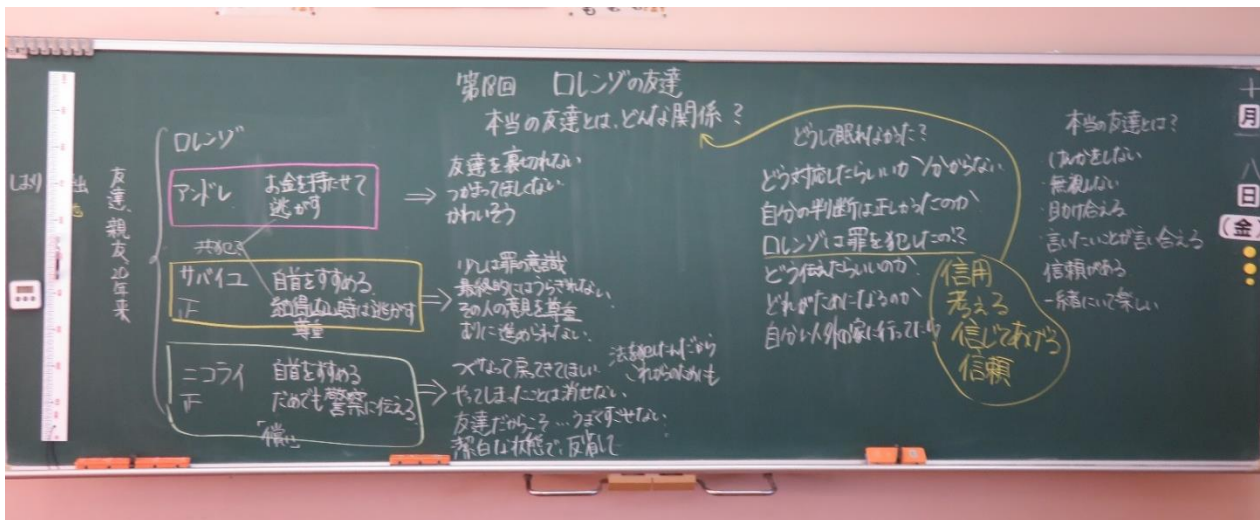 第18回 ロレンゾの友達
本当の友達とは、どんな関係?
友達、親友、20年来
ロレンゾ
アンドレ お金を持たせて
逃がす
共犯
サバイユ 自首をすすめる
正 納得 時は逃がす
尊重
ニコライ 自首をすすめる
正 だめでも警察に伝える
「償い
友達を裏切れない
つかまってほしくない
かわいそう
少しは罪の意識
最終的にはうらぎれない
その人の意見を尊重
進められない
つぐなって戻ってきてほしい
やってしまったことは消せない
友達だからこそ…うまくすごせない
潔白な状態で、反省して
法を犯したんだから
これからのためにも
どうして眠れなかった?
どう対応したらいいか分からない
自分の判断は正しかったのか
ロレンゾは罪を犯したの!?
どう伝えたらいいのか
どれがためになるのか
自分以外の家に行ってたら
信用
考える
信じてあげる
信頼
本当の友達とは?
けんかをしない
・無視しない
・助け合える
・言いたいことが言い合える
信頼がある
一緒にいて楽しい
十
月
八
日
(金)